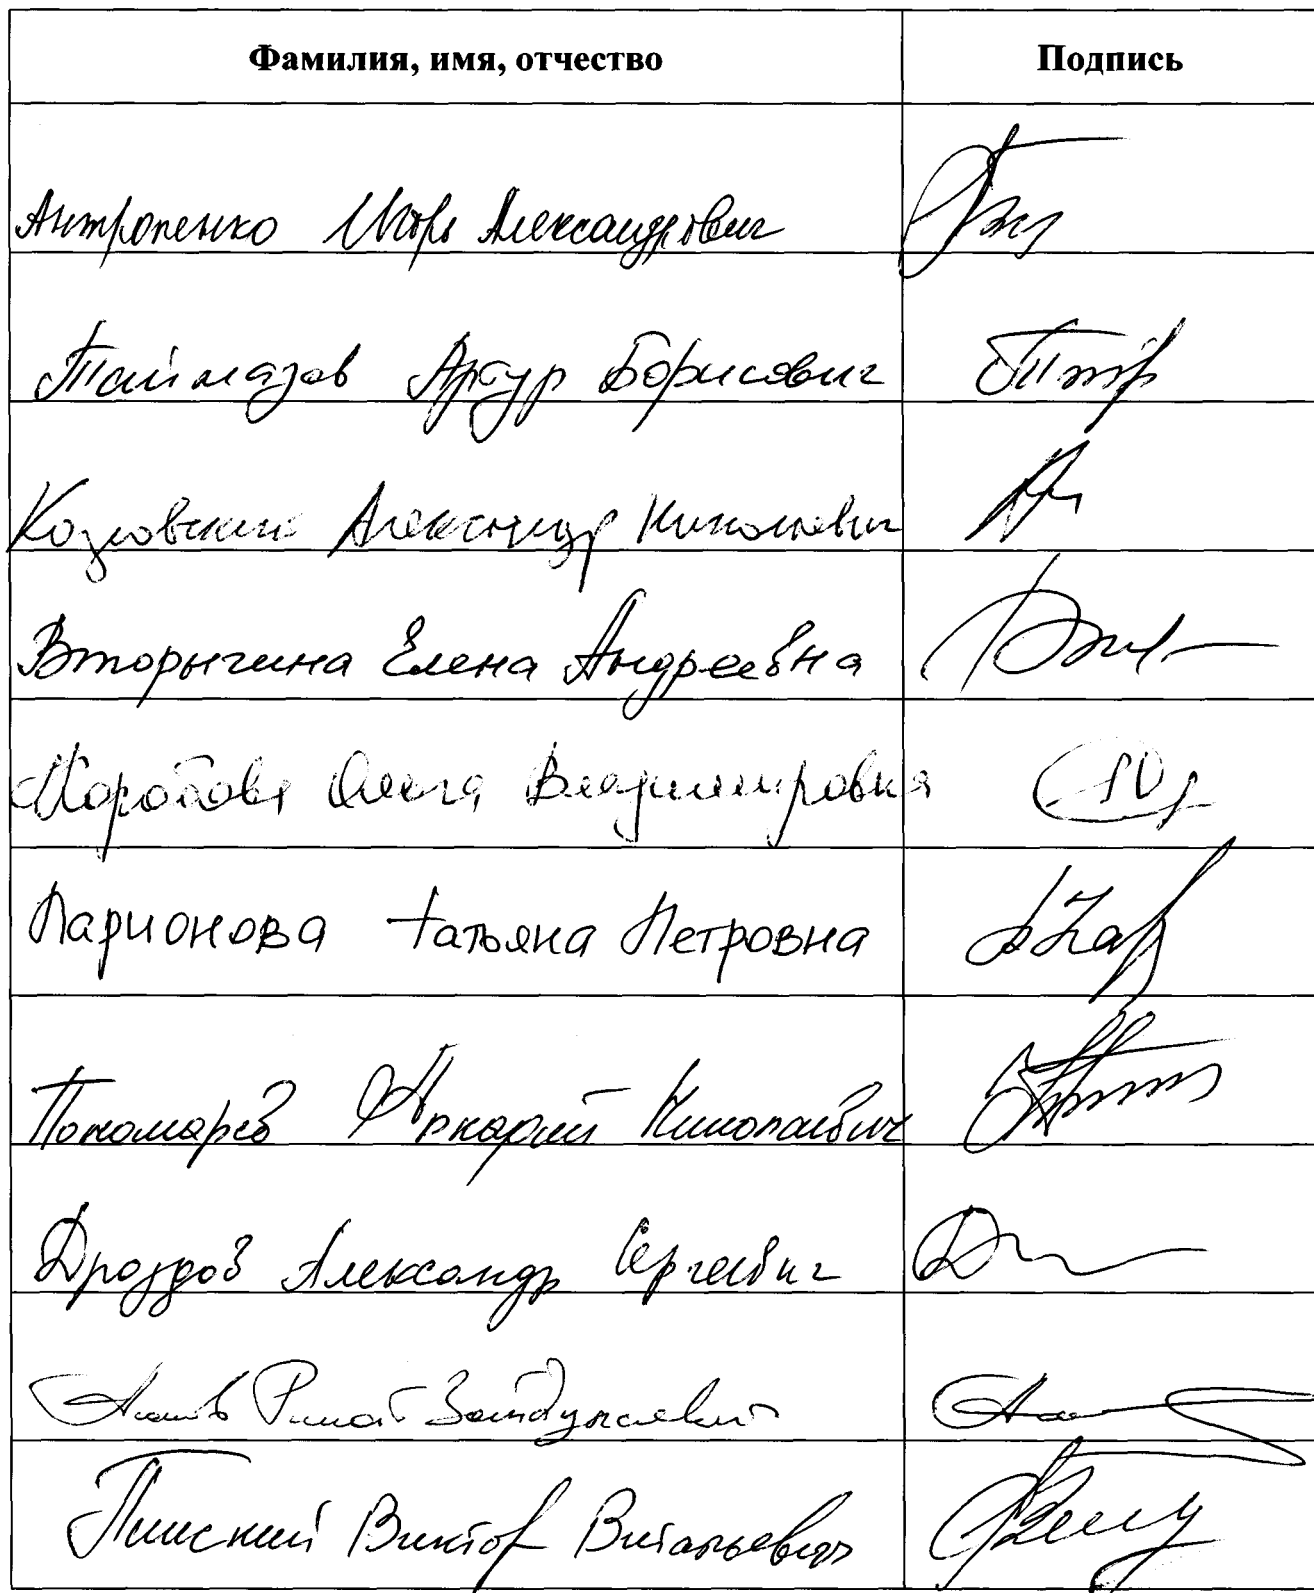 Фамилия, имя, отчество Подпись
Антропенко Игорь Александрович
Таймазов Артур Борисович
Козловский Александр Николаевич
Вторыгина Елена Андреевна
Коробова Ольга Владимировна
Ларионова Татьяна Петровна
Пономарёв Аркадий Николаевич
Дроздов Александр Сергеевич
Аитов Ринат Зайдулаевич
Пинский Виктор Витальевич